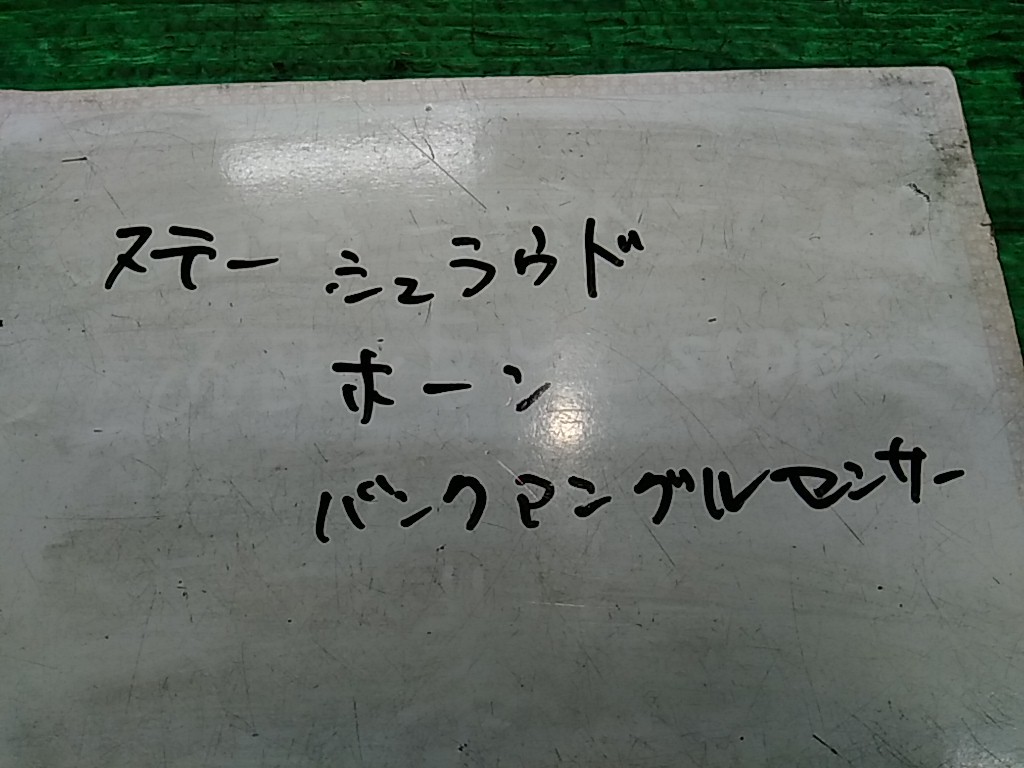 ステー シュラウド
ホーン
バンクアングルセンサー